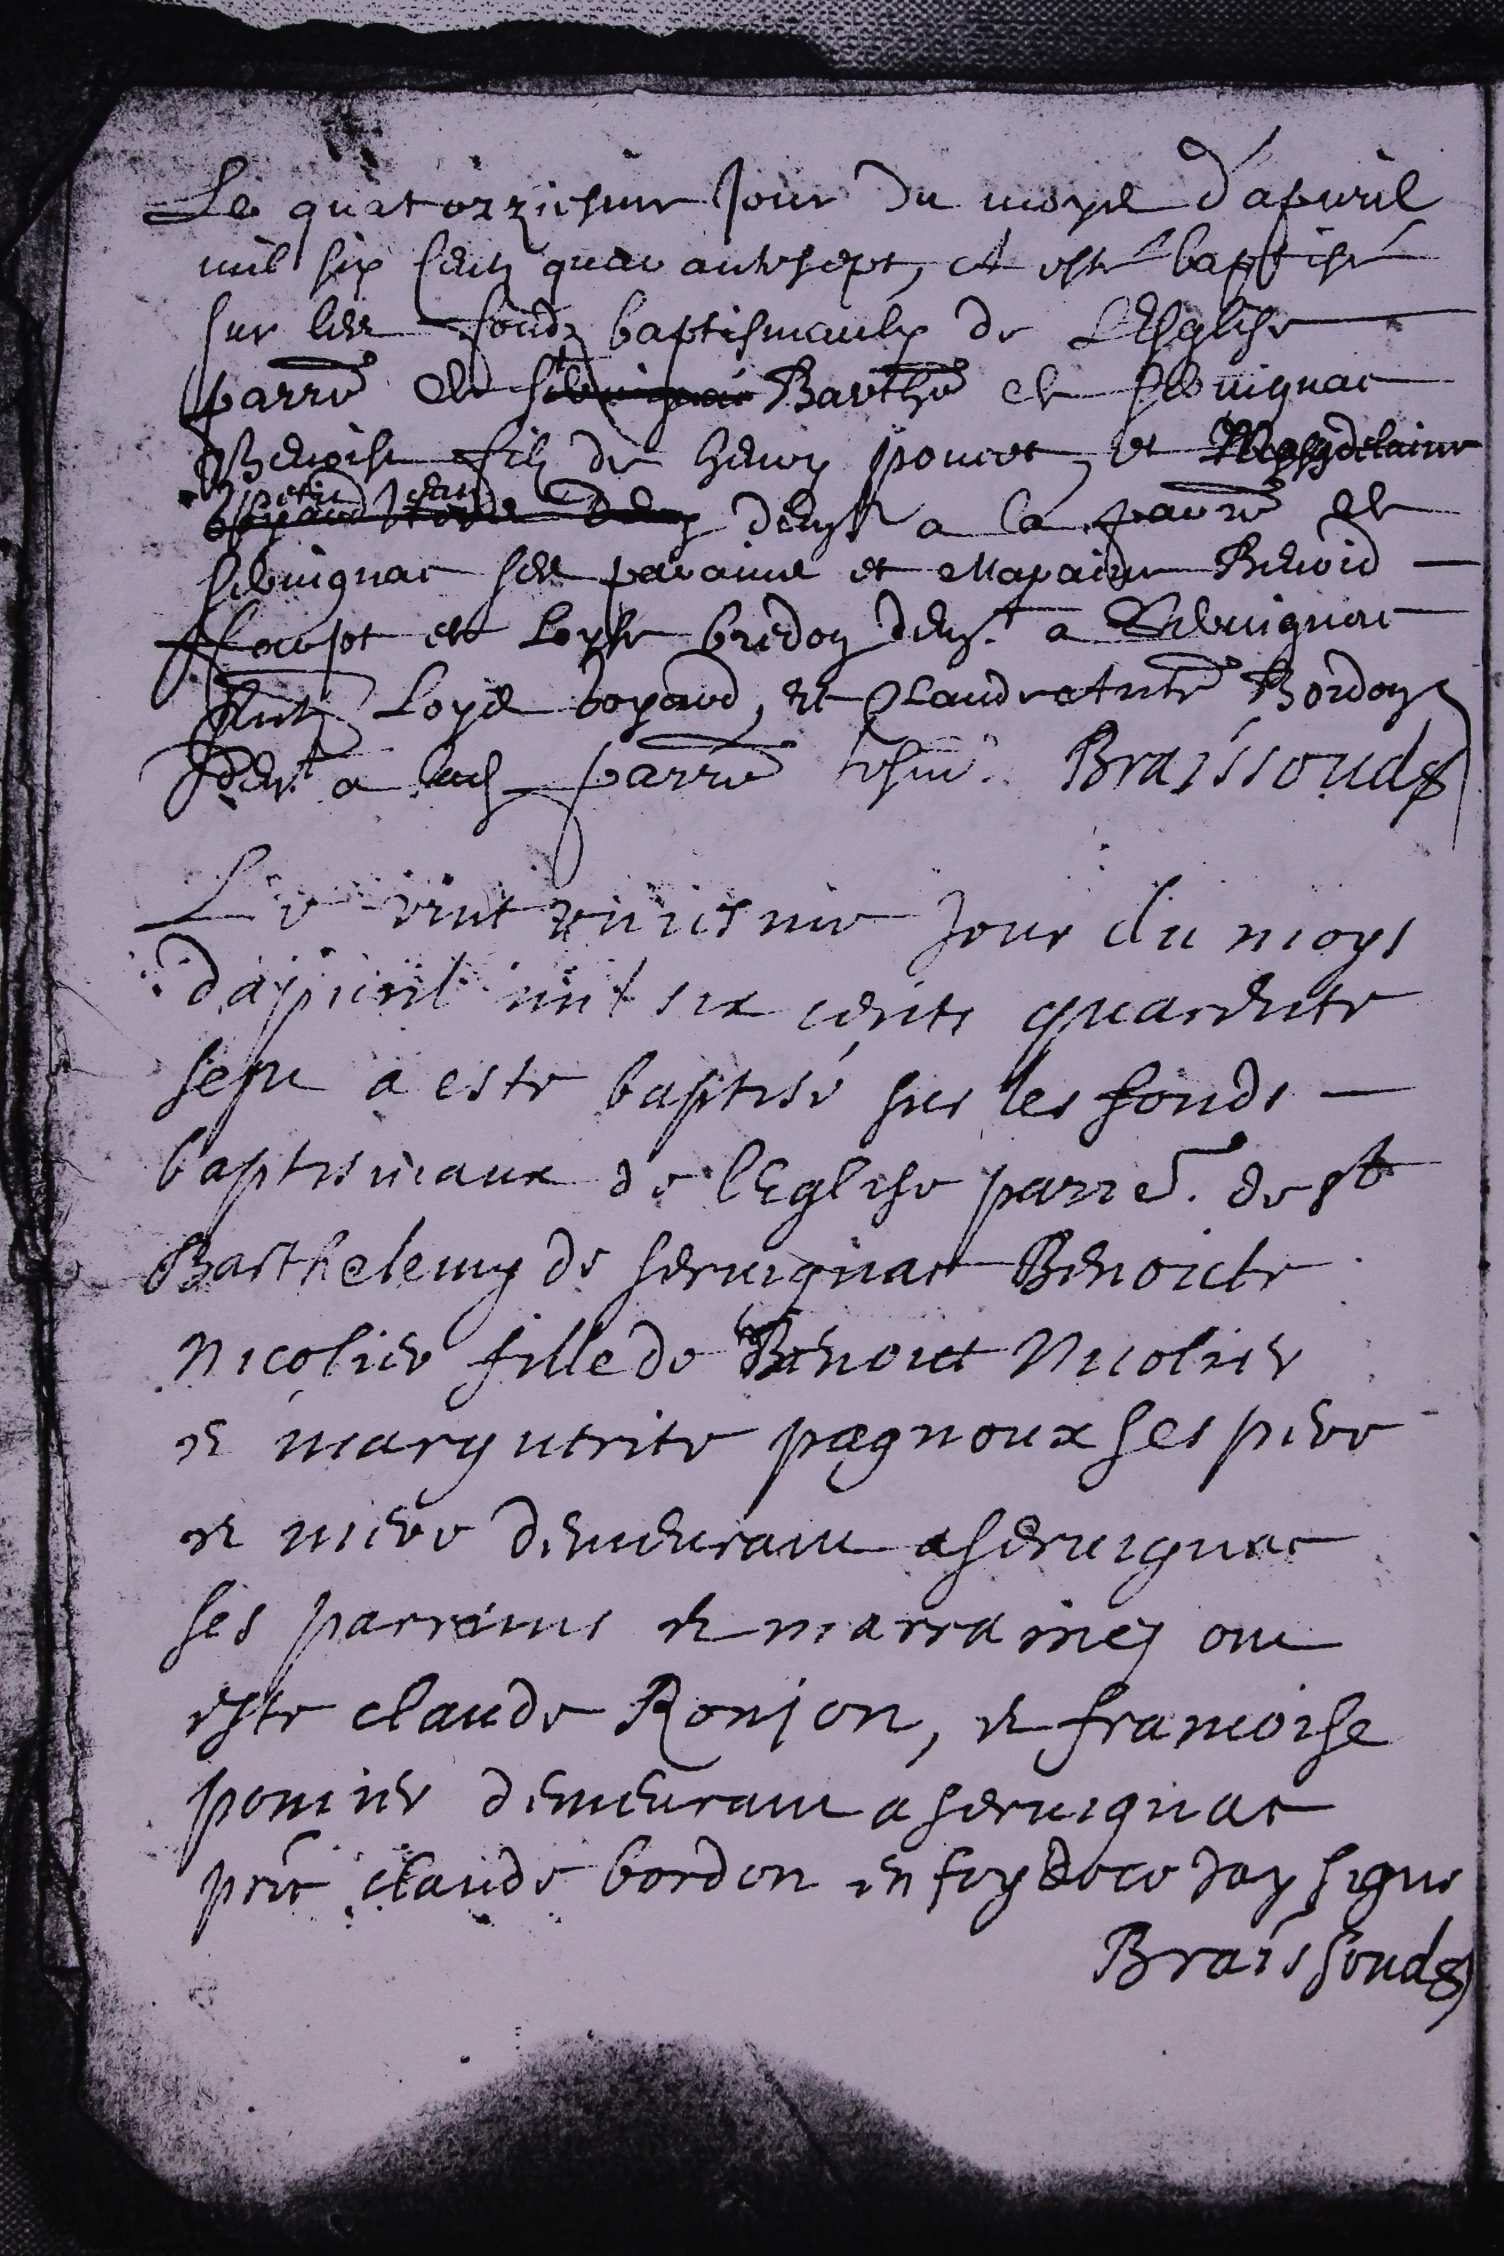 Le quatorziesme Jour du moys d'apvril
mil six centz quarantesept, A esté baptisé
sur les fondz baptismaulx de L'Esglise
parr͠e de St Barth͠e de Seruignac
Benoist filz de henry poncet, et Magdelaine
demt a la parr͠e de
seruignac ses paraine et Maraine Benoid
et Loyse bredon demt a Seruignac
Loys boyaud, et Claude Bordon
demt a lad parr͠e tesm. Braissouds
Le vint Jour du moys
d'apuril mil six cents quarente
sept a este baptisé sur les fonds
baptismaux de l'Eglise parre. de st
Barthelemy de seruignat Benoicte
Nicolier fille de Benoict Nicolier
et marguerite pagnoux ses pere
et mere demeurant a seruignac
ses parrains et marraines ont
este claude Ronjon, et francoise
pomier demeurant a seruignac
pnt claude bordon en foy de ce Jay signe
Braissouds